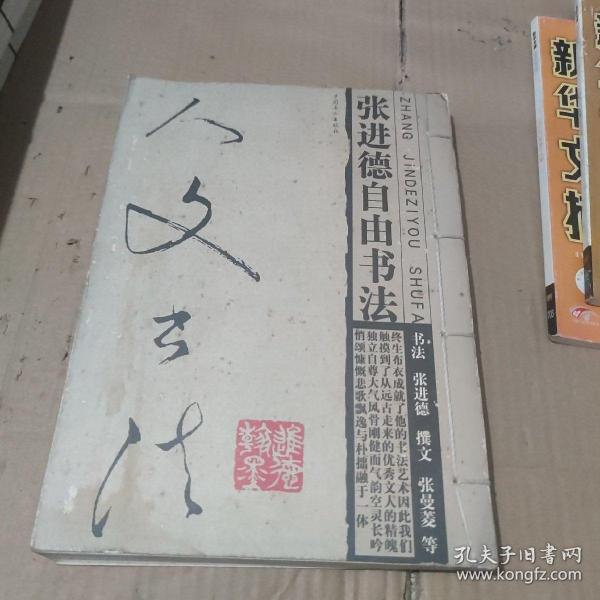 人文书法
张进德自由书法
ZHANG JINDEZIYOU SHUFA
书法 张进德 撰文 张曼菱 等
终生布衣成就了他的书法艺术因此我们
触摸到了从远古走来的优秀文人的精魄
独立自尊大气风骨刚健而气韵空灵长吟
悄颂慷慨悲歌飘逸与朴拙融于一体
進德
翰墨
新华文摘
孔夫子旧书网
www.kongfz.com